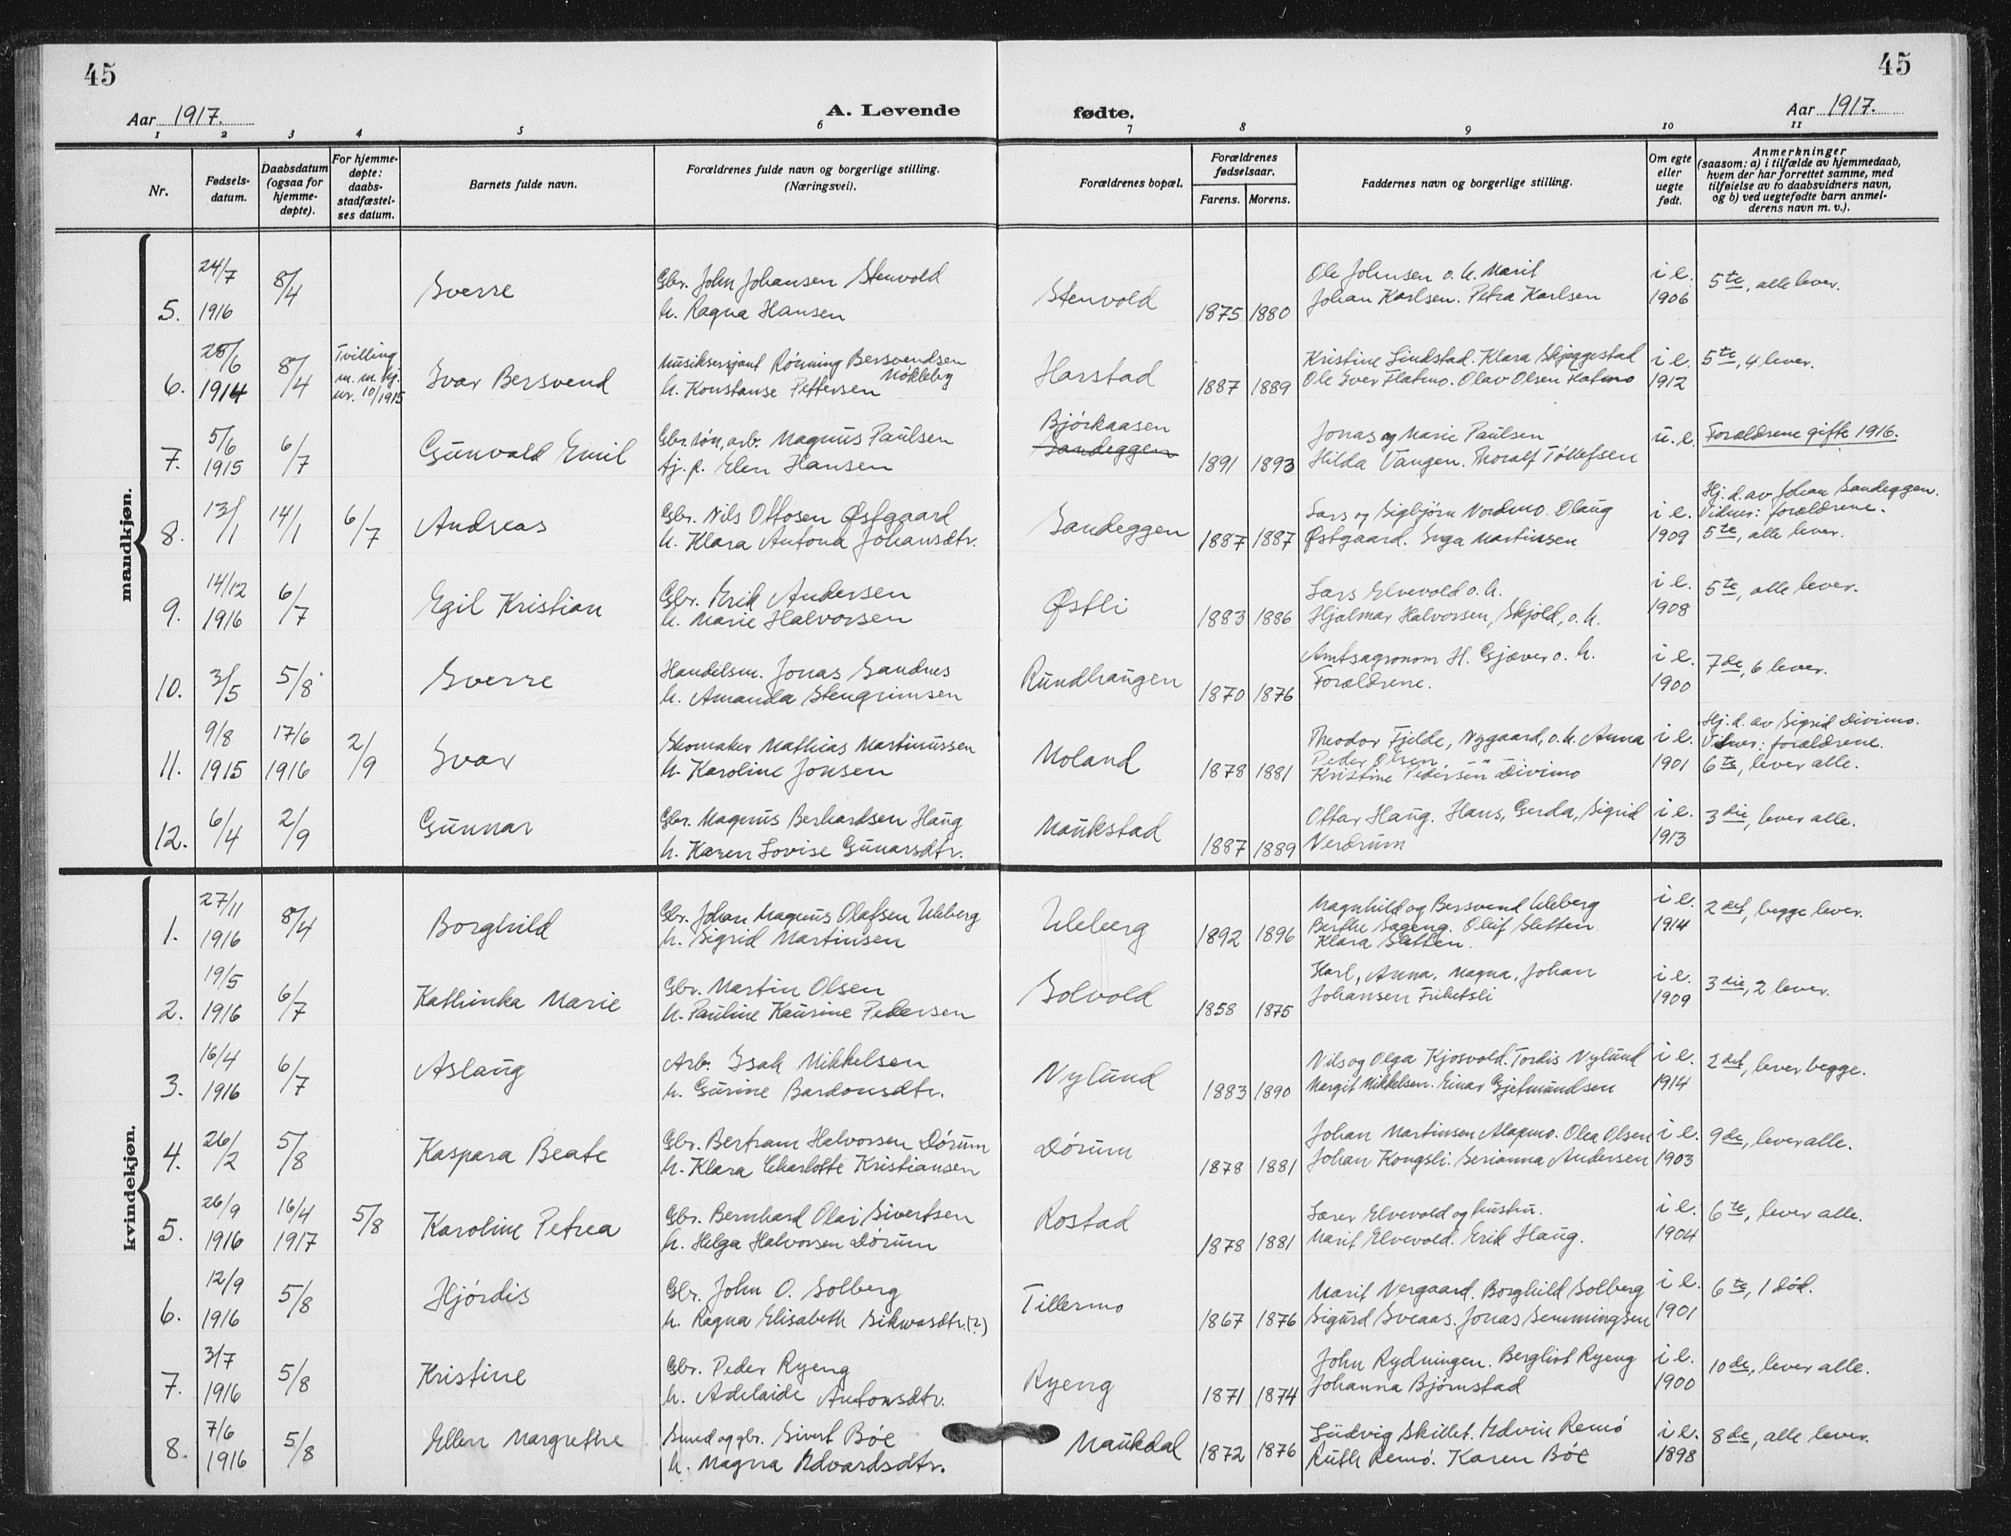 45
45
Aar 1917.
A. Levende
fødte.
Aar 1917.
1 2 3 4 5 6 7 8 9 10 11
Nr.
Fødsels-
datum.
Daabsdatum
(ogsaa for
hjemme-
døpte).
For hjemme-
døpte:
daabs-
stadfæstel-
ses datum.
Barnets fulde navn.
Forældrenes fulde navn og borgerlige stilling.
(Næringsvei).
Forældrenes bopæl.
Forældrenes
fødselsaar.
Farens. Morens.
Faddernes navn og borgerlige stilling.
Om egte
eller
uegte
født.
Anmerkninger
(saasom: a) i tilfælde av hjemmedaab,
hvem der har forrettet samme, med
tilføielse av to daabsvidners navn,
og b) ved uegtefødte barn anmel-
derens navn m. v.).
mandkjøn.
5. 24/7 1916 8/4 Sverre
Gbr. John Johansen Stenvold
h. Ragna Hansen
Stenvold 1875 1880
Ole Johnsen o. h. Marit
Johan Karlsen. Petra Karlsen
i e. 1906
5te, alle lever.
6. 28/6 1914 8/4
Tvilling
m. m. kj.
nr. 10/1915
Ivar Bersvend
Musiksersjant Rønning Bersvendsen
Møkleby
h. Konstanse Pettersen
Harstad 1887 1889
Kristine Lindstad. Klara Skjeggestad
Ole Iver Flatmo. Olav Olsen Flatmo
i e. 1912
5te, 4 lever.
7. 5/6 1915 6/7 Gunvald Emil
Gbr.søn, arb. Magnus Paulsen
tj. p. Elen Hansen
Bjørkaasen
Sandeggen
1891 1893
Jonas og Marie Paulsen
Hilda Vangen. Thoralf Tollefsen
u. e.
Forældrene gifte 1916.
8. 13/1 14/1 6/7 Andreas
Gbr. Nils Ottosen Østgaard
h. Klara Antona Johansdtr.
Sandeggen 1887 1887
Lars og Sigbjørn Nordmo. Olaug
Østgaard. Inga Martinsen
i e. 1909
Hj. d. av Johan Sandeggen.
Vidner: forældrene.
5te, alle lever.
9. 14/12 1916 6/7 Egil Kristian
Gbr. Erik Andersen
h. Marie Halvorsen
Østli 1883 1886
Lars Elvevold o. h.
Hjalmar Halvorsen, Skjold, o. h.
i e. 1908
5te, alle lever.
10. 3/5 5/8 Sverre
Handelsm. Jonas Sandnes
h. Amanda Stengrimsen
Rundhaugen 1870 1876
Amtsagronom H. Gjæver o. h.
Forældrene.
i e. 1900
7de, 6 lever.
11. 9/8 1915 17/6 1916 2/9 Ivar
Skomaker Mathias Martinussen
h. Karoline Jonsen
Moland 1878 1881
Theodor Fjelde, Nygaard, o. h. Anna
Peder Olsen
Kristine Pedersen Divimo
i e. 1901
Hj. d. av Sigrid Divimo.
Vidner: forældrene.
6te, lever alle.
12. 6/4 2/9 Gunnar
Gbr. Magnus Berhardsen Haug
h. Karen Lovise Gunarsdtr.
Maukstad 1887 1889
Ottar Haug. Hans, Gerda, Sigrid
Verdrum
i e. 1913
3die, lever alle.
kvindekjøn.
1. 27/11 1916 8/4 Borghild
Gbr. Johan Magnus Olafsen Uleberg
h. Sigrid Martinsen
Uleberg 1892 1896
Magnhild og Bersvend Uleberg
Berthe Sageng. Oluf Sletten
Klara Sletten.
i e. 1914
2det, begge lever.
2. 19/5 1916 6/7 Kathinka Marie
Gbr. Martin Olsen
h. Pauline Kaurine Pedersen
Solvold 1858 1875
Karl, Anna, Magna, Johan
Johansen Frihetsli
i e. 1909
3die, 2 lever.
3. 16/4 1916 6/7 Aslaug
Arb. Isak Mikkelsen
h. Gurine Bardonsdtr.
Nylund 1883 1890
Nils og Olga Kjosvold. Tordis Nylund
Margit Mikkelsen. Einar Gjetmundsen
i e. 1914
2det, lever begge.
4. 26/2 5/8 Kaspara Beate
Gbr. Bertram Halvorsen Dørum
h. Klara Charlotte Kristiansen
Dørum 1878 1881
Johan Martinsen Alapmo. Olea Olsen
Johan Kongsli. Serianna Andersen
i e. 1903
9de, lever alle.
5. 26/9 1916 16/4 1917 5/8 Karoline Petrea
Gbr. Bernhard Olai Sivertsen
h. Helga Halvorsen Dørum
Rostad 1878 1881
Sører Elvevold og hustru.
Marit Elvevold. Erik Haug.
i e. 1904
6te, lever alle.
6. 12/9 1916 5/8 Hjørdis
Gbr. John O. Solberg
h. Ragna Elisabeth Sikvasdtr. (?)
Tillermo 1867 1876
Marit Vergaard. Borghild Solberg
Sigurd Sveaas. Jonas Semmingsen
i e. 1901
6te, 1 død.
7. 3/7 1916 5/8 Kristine
Gbr. Peder Ryeng
h. Adelaide Antonsdtr.
Ryeng 1871 1874
John Rydningen. Bergliot Ryeng
Johanna Bjørnstad
i e. 1900
10de, lever alle.
8. 7/6 1916 5/8 Ellen Margrethe
Smed og gbr. Sivert Bøe
h. Magna Edvardsdtr.
Maukdal 1872 1876
Ludvig Skillet. Edvin Remø
Ruth Remø. Karen Bøe
i e. 1898
8de, alle lever.